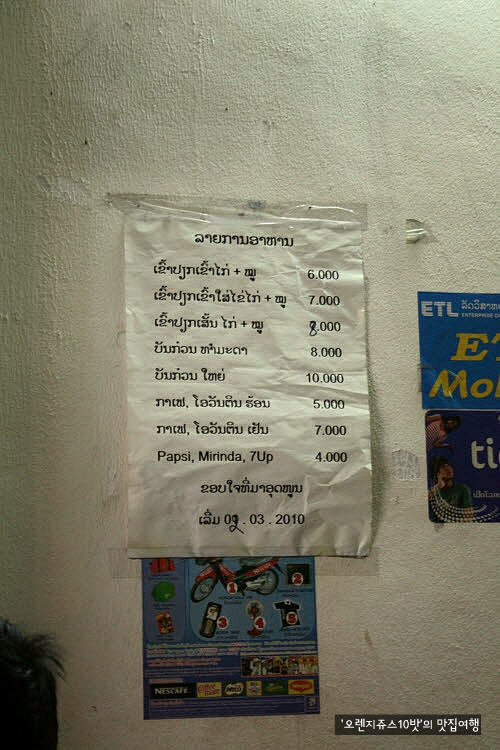 ລາຍການອາຫານ
ເຂົ້າປຽກເຂົ້າໄກ່ + ໝູ 6.000
ເຂົ້າປຽກເຂົ້າໃສ່ໄຂ່ໄກ່ + ໝູ 7.000
ເຂົ້າປຽກເສັ້ນ ໄກ່ + ໝູ 8.000
ບັນກ່ວນ ທຳມະດາ 8.000
ບັນກ່ວນ ໃຫຍ່ 10.000
ກາເຟ, ໂອວັນຕິນ ຮ້ອນ 5.000
ກາເຟ, ໂອວັນຕິນ ເຢັນ 7.000
Papsi, Mirinda, 7Up 4.000
ຂອບໃຈທີ່ມາອຸດໜູນ
ເລີ່ມ 02 . 03 . 2010
ETL
ENTERPRISE
Mo
tic
1
2
3
4
5
NESCAFÉ
MILO
MAGGI
'오렌지쥬스10밧'의 맛집여행